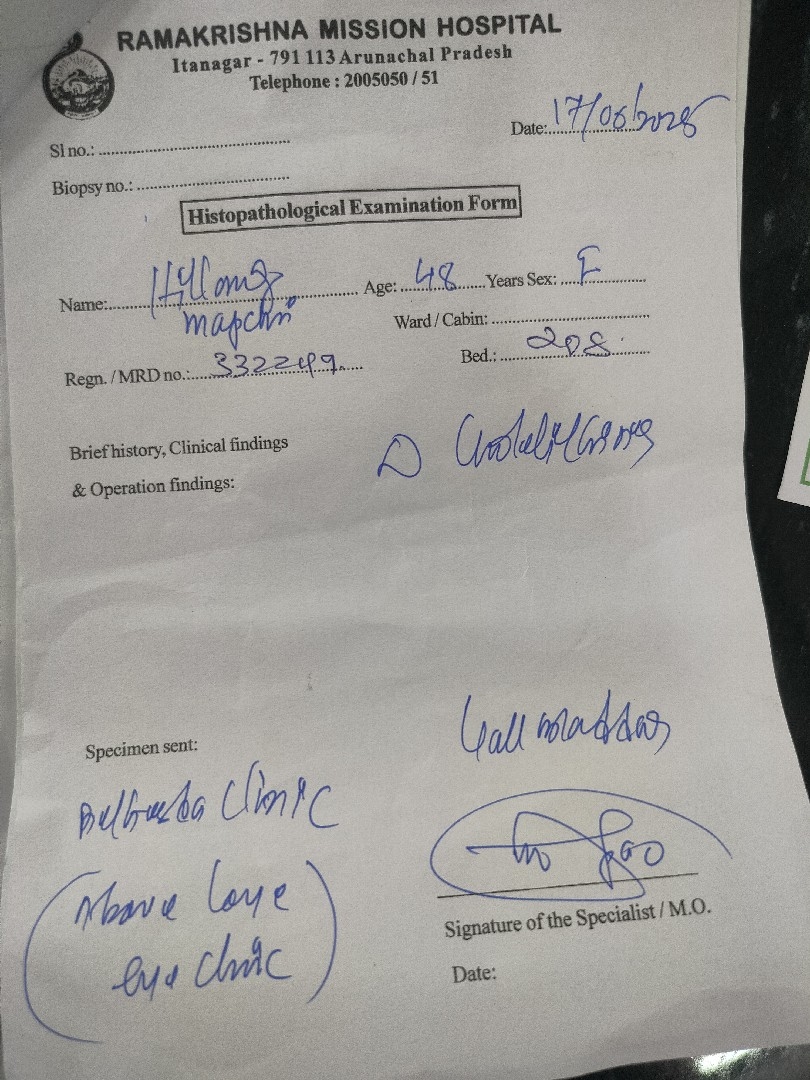 RAMAKRISHNA MISSION HOSPITAL
Itanagar - 791 113 Arunachal Pradesh
Telephone : 2005050 / 51
Date: 17/06/2025
Sl no.:
Biopsy no.:
Histopathological Examination Form
Name: Age: 48 Years Sex: F
Ward / Cabin:
Regn. / MRD no.: 332249 Bed.: 208
Brief history, Clinical findings
& Operation findings:
Specimen sent: Gall bladder
Clinic
(Above Loye
eye clinic)
Signature of the Specialist / M.O.
Date: